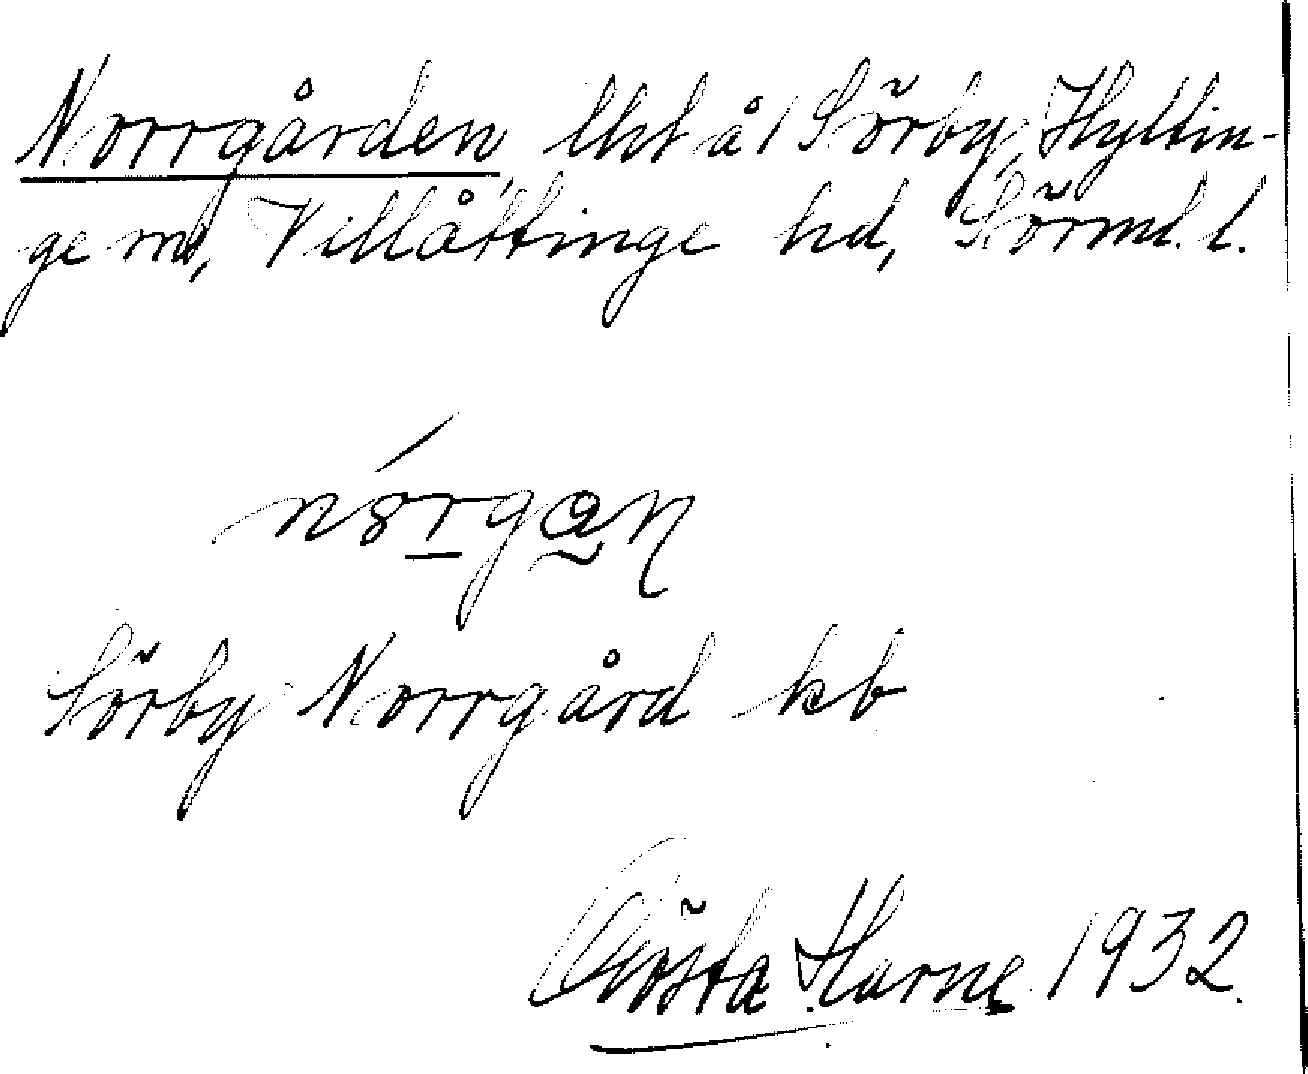 Norrgården, lht å 1 Sörby, Hyltin-
ge sn, Villåttinge hd, Sörml. l.
Sörby Norrgård kb
Gösta Harne 1932.